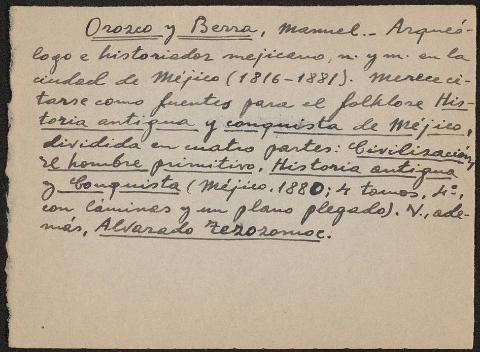 Orozco y Berra, Manuel.- Arqueó-
logo e historiador mejicano, n. y m. en la
ciudad de Méjico (1816-1881). Merece ci-
tarse como fuentes para el folklore His-
toria antigua y conquista de Méjico,
dividida en cuatro partes: Civilización,
El hombre primitivo, Historia antigua
y Conquista (Méjico, 1880; 4 tomos, 4º,
con láminas y un plano plegado). V., ade-
más, Alvarado Tezozomoc.